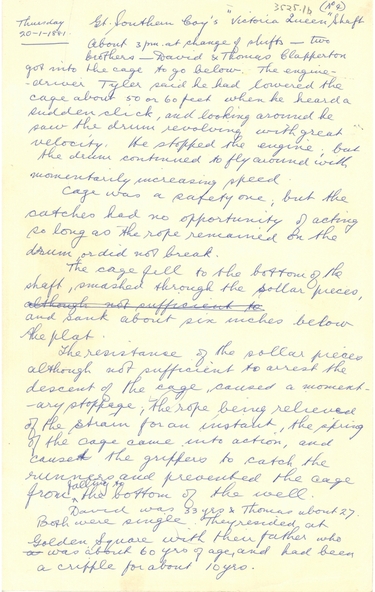 3525.1b (No 2)
Thursday Gt. Southern Coy's "Victoria Queen" Shaft
20-1-1881.
About 3 p.m. at change of shifts — two
brothers — David & Thomas Clapperton
got into the cage to go below. The engine-
-driver Tyler said he had lowered the
cage about 50 or 60 feet when he heard a
sudden click, and looking around he
saw the drum revolving with great
velocity. He stopped the engine, but
the drum continued to fly around with
momentarily increasing speed.
Cage was a safety one, but the
catches had no opportunity of acting
so long as the rope remained on the
drum or did not break.
The cage fell to the bottom of the
shaft, smashed through the sollar pieces,
although not sufficient to
and sank about six inches below
the plat.
The resistance of the sollar pieces
although not sufficient to arrest the
descent of the cage, caused a moment-
-ary stoppage, the rope being relieved
of the strain for an instant, the spring
of the cage came into action, and
caused the grippers to catch the
runners and prevented the cage
from falling to the bottom of the well.
David was 33 yrs & Thomas about 27.
Both were single. They resided at
Golden Square with their father who
was about 60 yrs of age, and had been
a cripple for about 10 yrs.